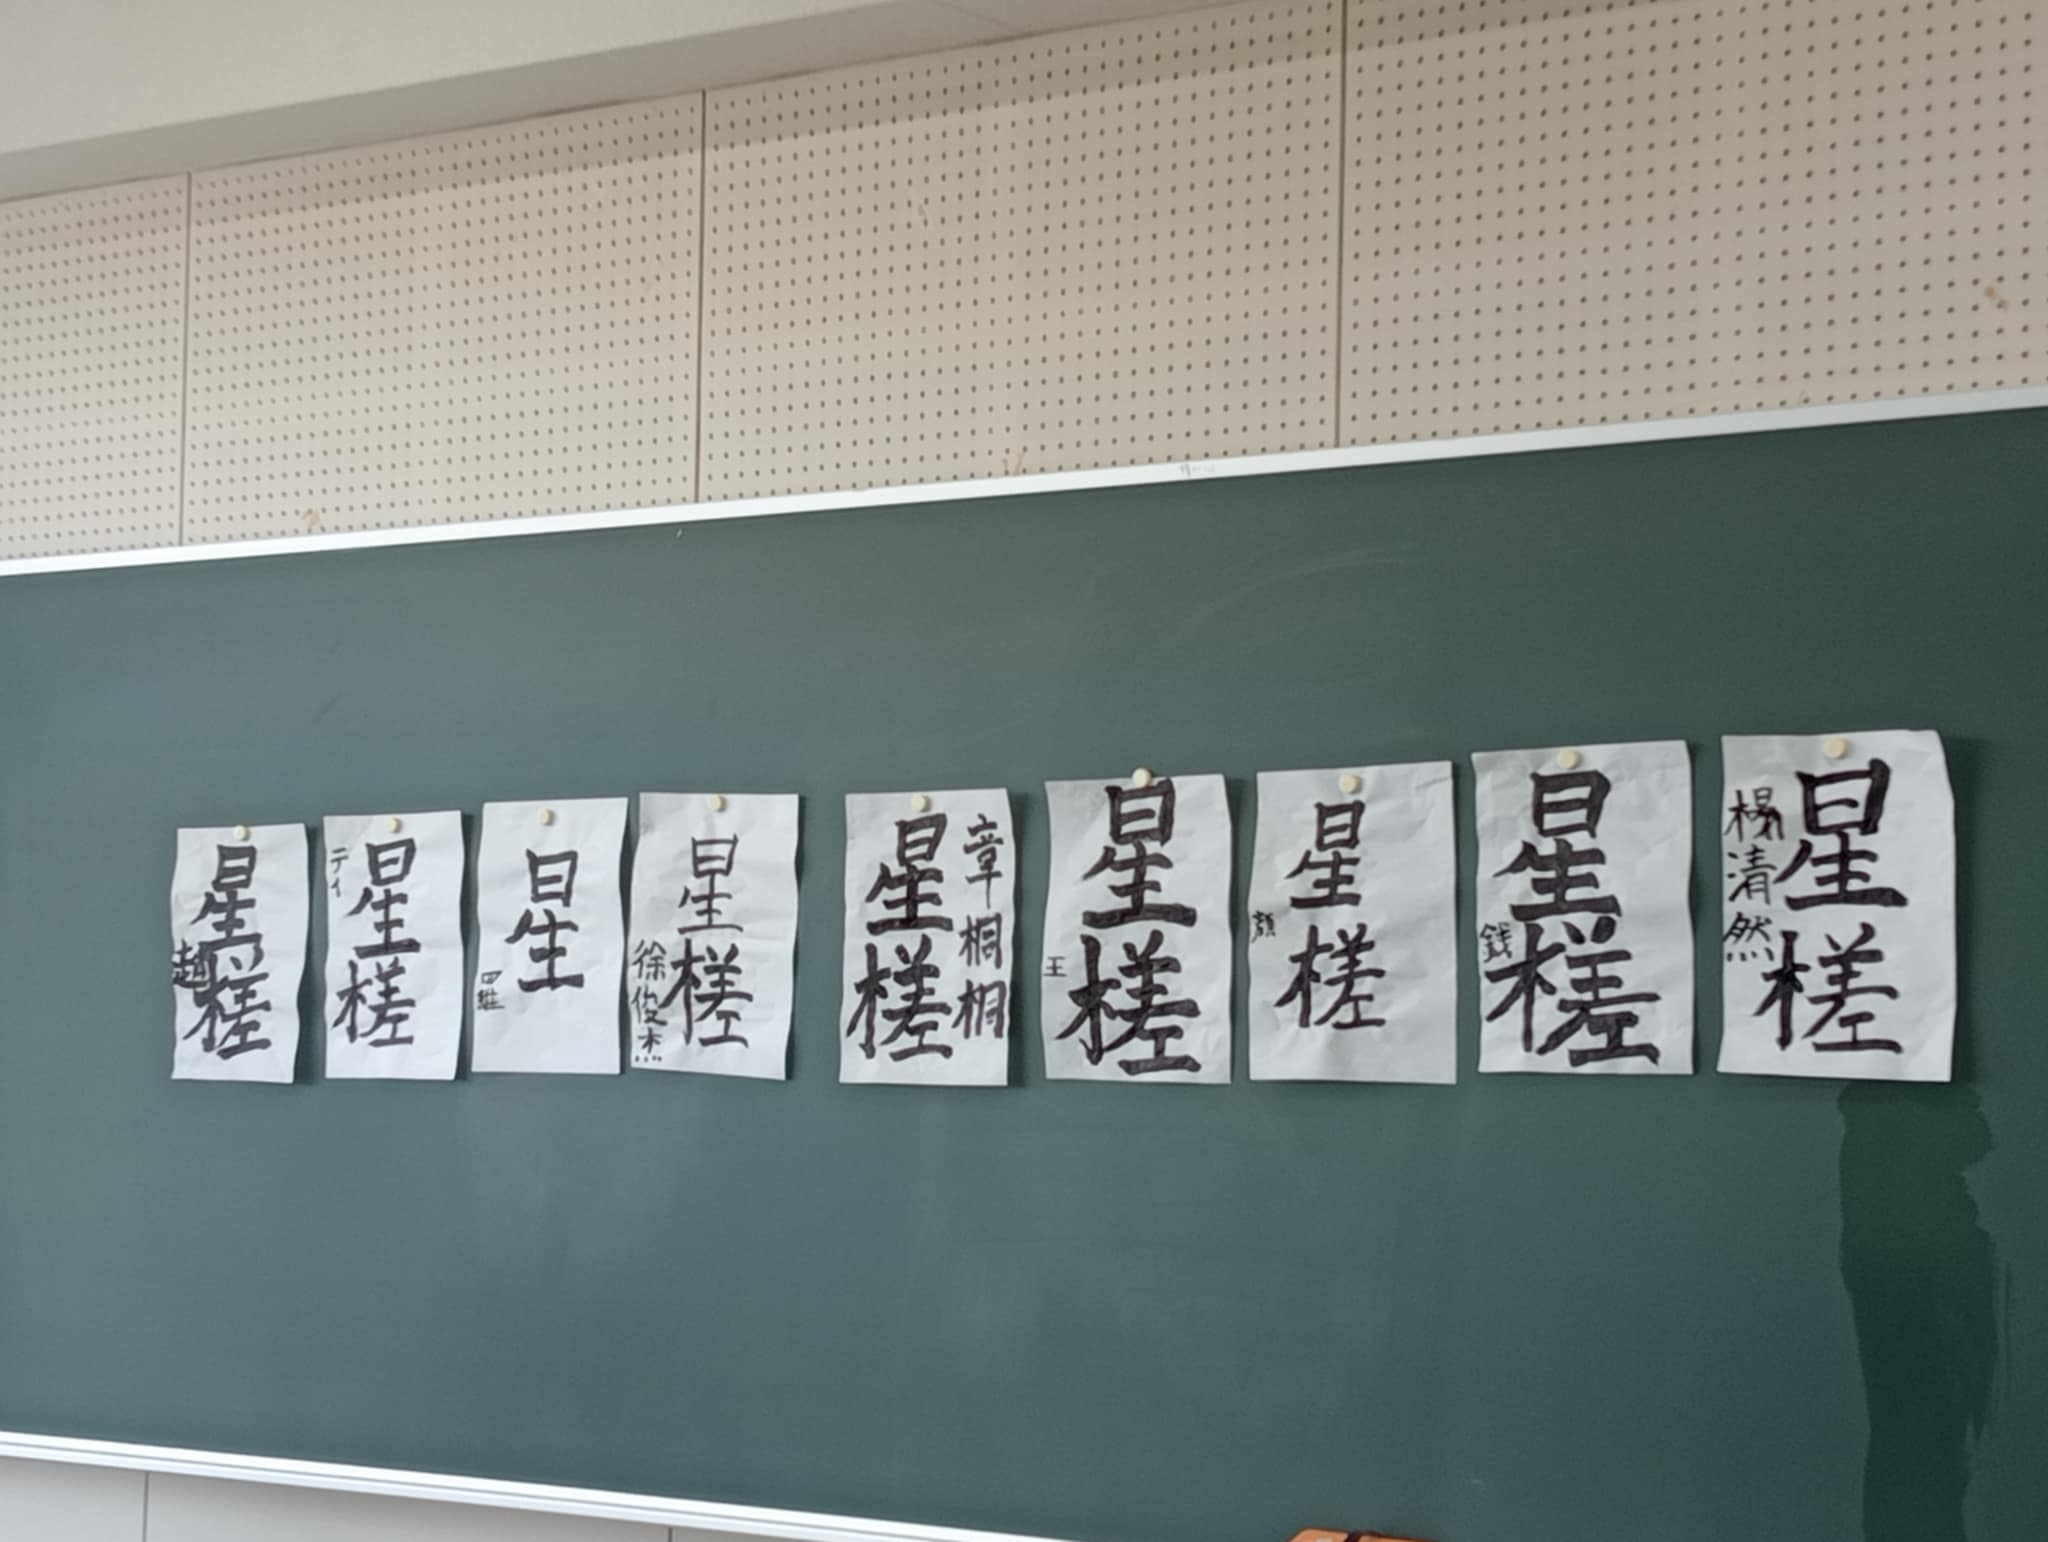 星槎
趙
星槎
テイ
星
羅
星槎
徐俊杰
星槎
章桐桐
星槎
王
星槎
顔
星槎
銭
星槎
楊清然